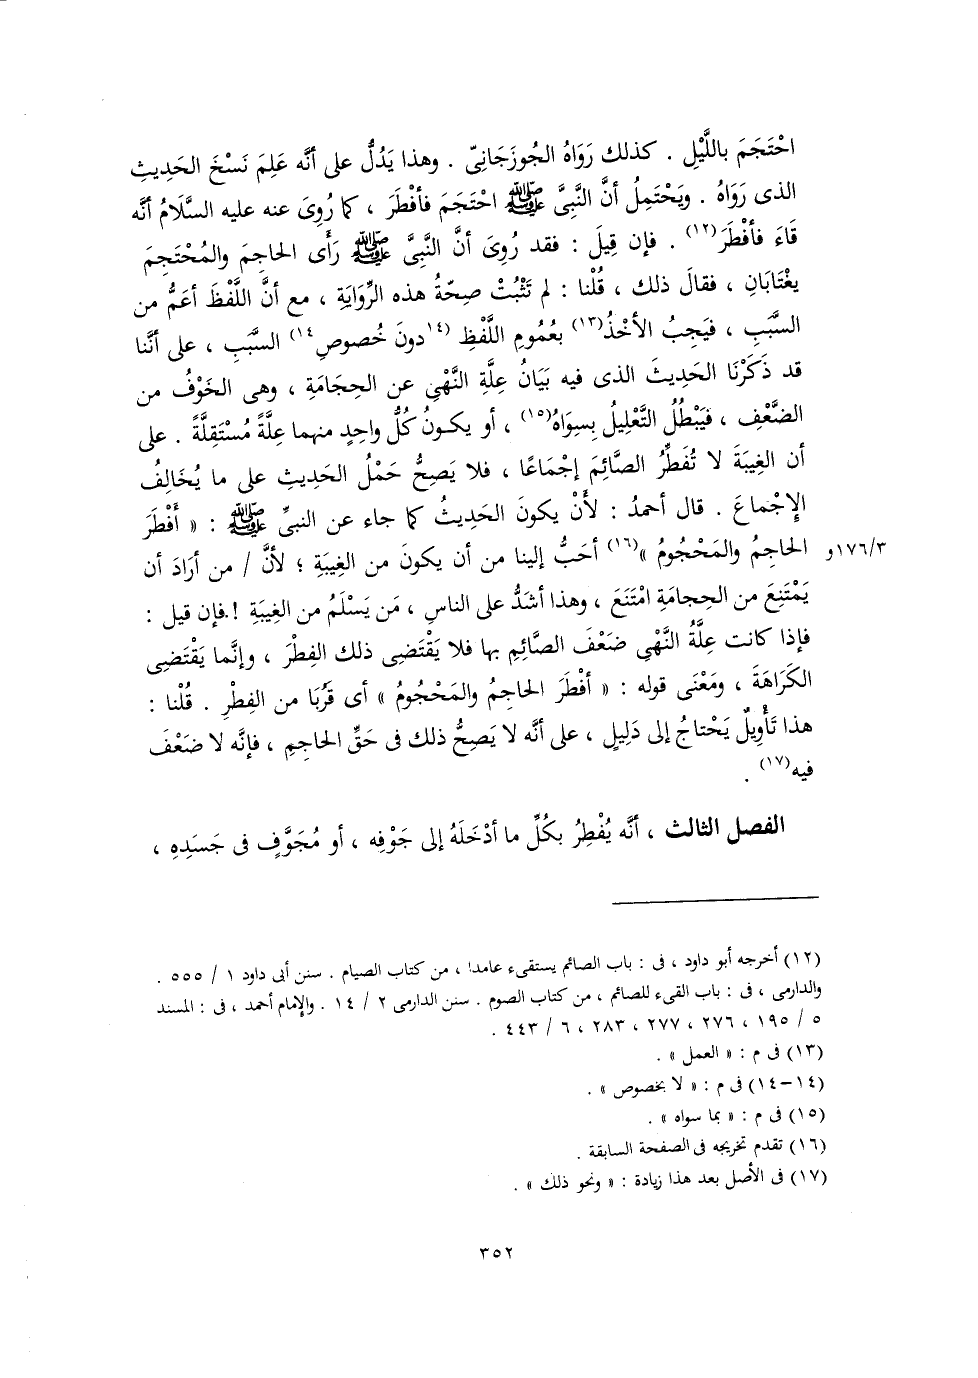 احْتَجَمَ باللَّيْلِ . كذلك رَوَاهُ الجُوزَجَانِىّ . وهذا يَدُلُّ على أنَّه عَلِمَ نَسْخَ الحَدِيثِ
الذى رَوَاهُ . ويَحْتَمِلُ أنَّ النَّبِىَّ ﷺ احْتَجَمَ فأفْطَرَ ، كما رُوِىَ عنه عليه السَّلَامُ أنَّه
قَاءَ فأفْطَرَ(١٢) . فإن قِيلَ : فقد رُوِىَ أنَّ النَّبِىَّ ﷺ رَأَى الحاجِمَ والمُحْتَجِمَ
يغْتَابَانِ ، فقالَ ذلك ، قُلْنا : لم تَثْبُتْ صِحَّةُ هذه الرِّوَايَةِ ، مع أنَّ اللَّفْظَ أعَمُّ من
السَّبَبِ ، فيَجِبُ الأخْذُ(١٣) بعُمُومِ اللَّفْظِ (١٤دونَ خُصوصِ١٤) السَّبَبِ ، على أنَّنا
قد ذَكَرْنَا الحَدِيثَ الذى فيه بَيَانُ عِلَّةِ النَّهْىِ عن الحِجَامَةِ ، وهى الخَوْفُ من
الضَّعْفِ ، فيَبْطُلُ التَّعْلِيلُ بِسِوَاهُ(١٥) ، أو يكونُ كُلُّ واحِدٍ منهما عِلَّةً مُسْتَقِلَّةً . على
أن الغِيبَةَ لا تُفَطِّرُ الصَّائِمَ إجْمَاعًا ، فلا يَصِحُّ حَمْلُ الحَدِيثِ على ما يُخَالِفُ
الإِجْماعَ . قال أحمدُ : لأَنْ يكونَ الحَدِيثُ كما جاء عن النبىِّ ﷺ : « أَفْطَرَ
الحاجِمُ والمَحْجُومُ »(١٦) أحَبُّ إلينا من أن يكونَ من الغِيبَةِ ؛ لأنَّ / من أرَادَ أن ١٧٦/٣و
يَمْتَنِعَ من الحِجامَةِ امْتَنَعَ ، وهذا أشَدُّ على الناسِ ، مَن يَسْلَمُ من الغِيبَةِ ! . فإن قيل :
فإذا كانت عِلَّةُ النَّهْىِ ضَعْفَ الصَّائِمِ بها فلا يَقْتَضِى ذلك الفِطْرَ ، وإنَّما يَقْتَضِى
الكَرَاهَةَ ، ومَعْنَى قوله : « أفْطَرَ الحاجِمُ والمَحْجُومُ » أى قَرُبَا من الفِطْرِ . قُلْنا :
هذا تَأْوِيلٌ يَحْتاجُ إلى دَلِيلٍ ، على أنَّه لا يَصِحُّ ذلك فى حَقِّ الحاجِمِ ، فإنَّه لا ضَعْفَ
فيه(١٧) .
الفصل الثالث ، أنَّه يُفْطِرُ بكُلِّ ما أدْخَلَهُ إلى جَوْفِه ، أو مُجَوَّفٍ فى جَسَدِهِ ،
(١٢) أخرجه أبو داود ، فى : باب الصائم يستقىء عامدا ، من كتاب الصيام . سنن أبى داود ١ / ٥٥٥ .
والدارمى ، فى : باب القىء للصائم ، من كتاب الصوم . سنن الدارمى ٢ / ١٤ . والإمام أحمد ، فى : المسند
٥ / ١٩٥ ، ٢٧٦ ، ٢٧٧ ، ٢٨٣ ، ٦ / ٤٤٣ .
(١٣) فى م : « العمل » .
(١٤-١٤) فى م : « لا بخصوص » .
(١٥) فى م : « بما سواه » .
(١٦) تقدم تخريجه فى الصفحة السابقة .
(١٧) فى الأصل بعد هذا زيادة : « ونحو ذلك » .
٣٥٢